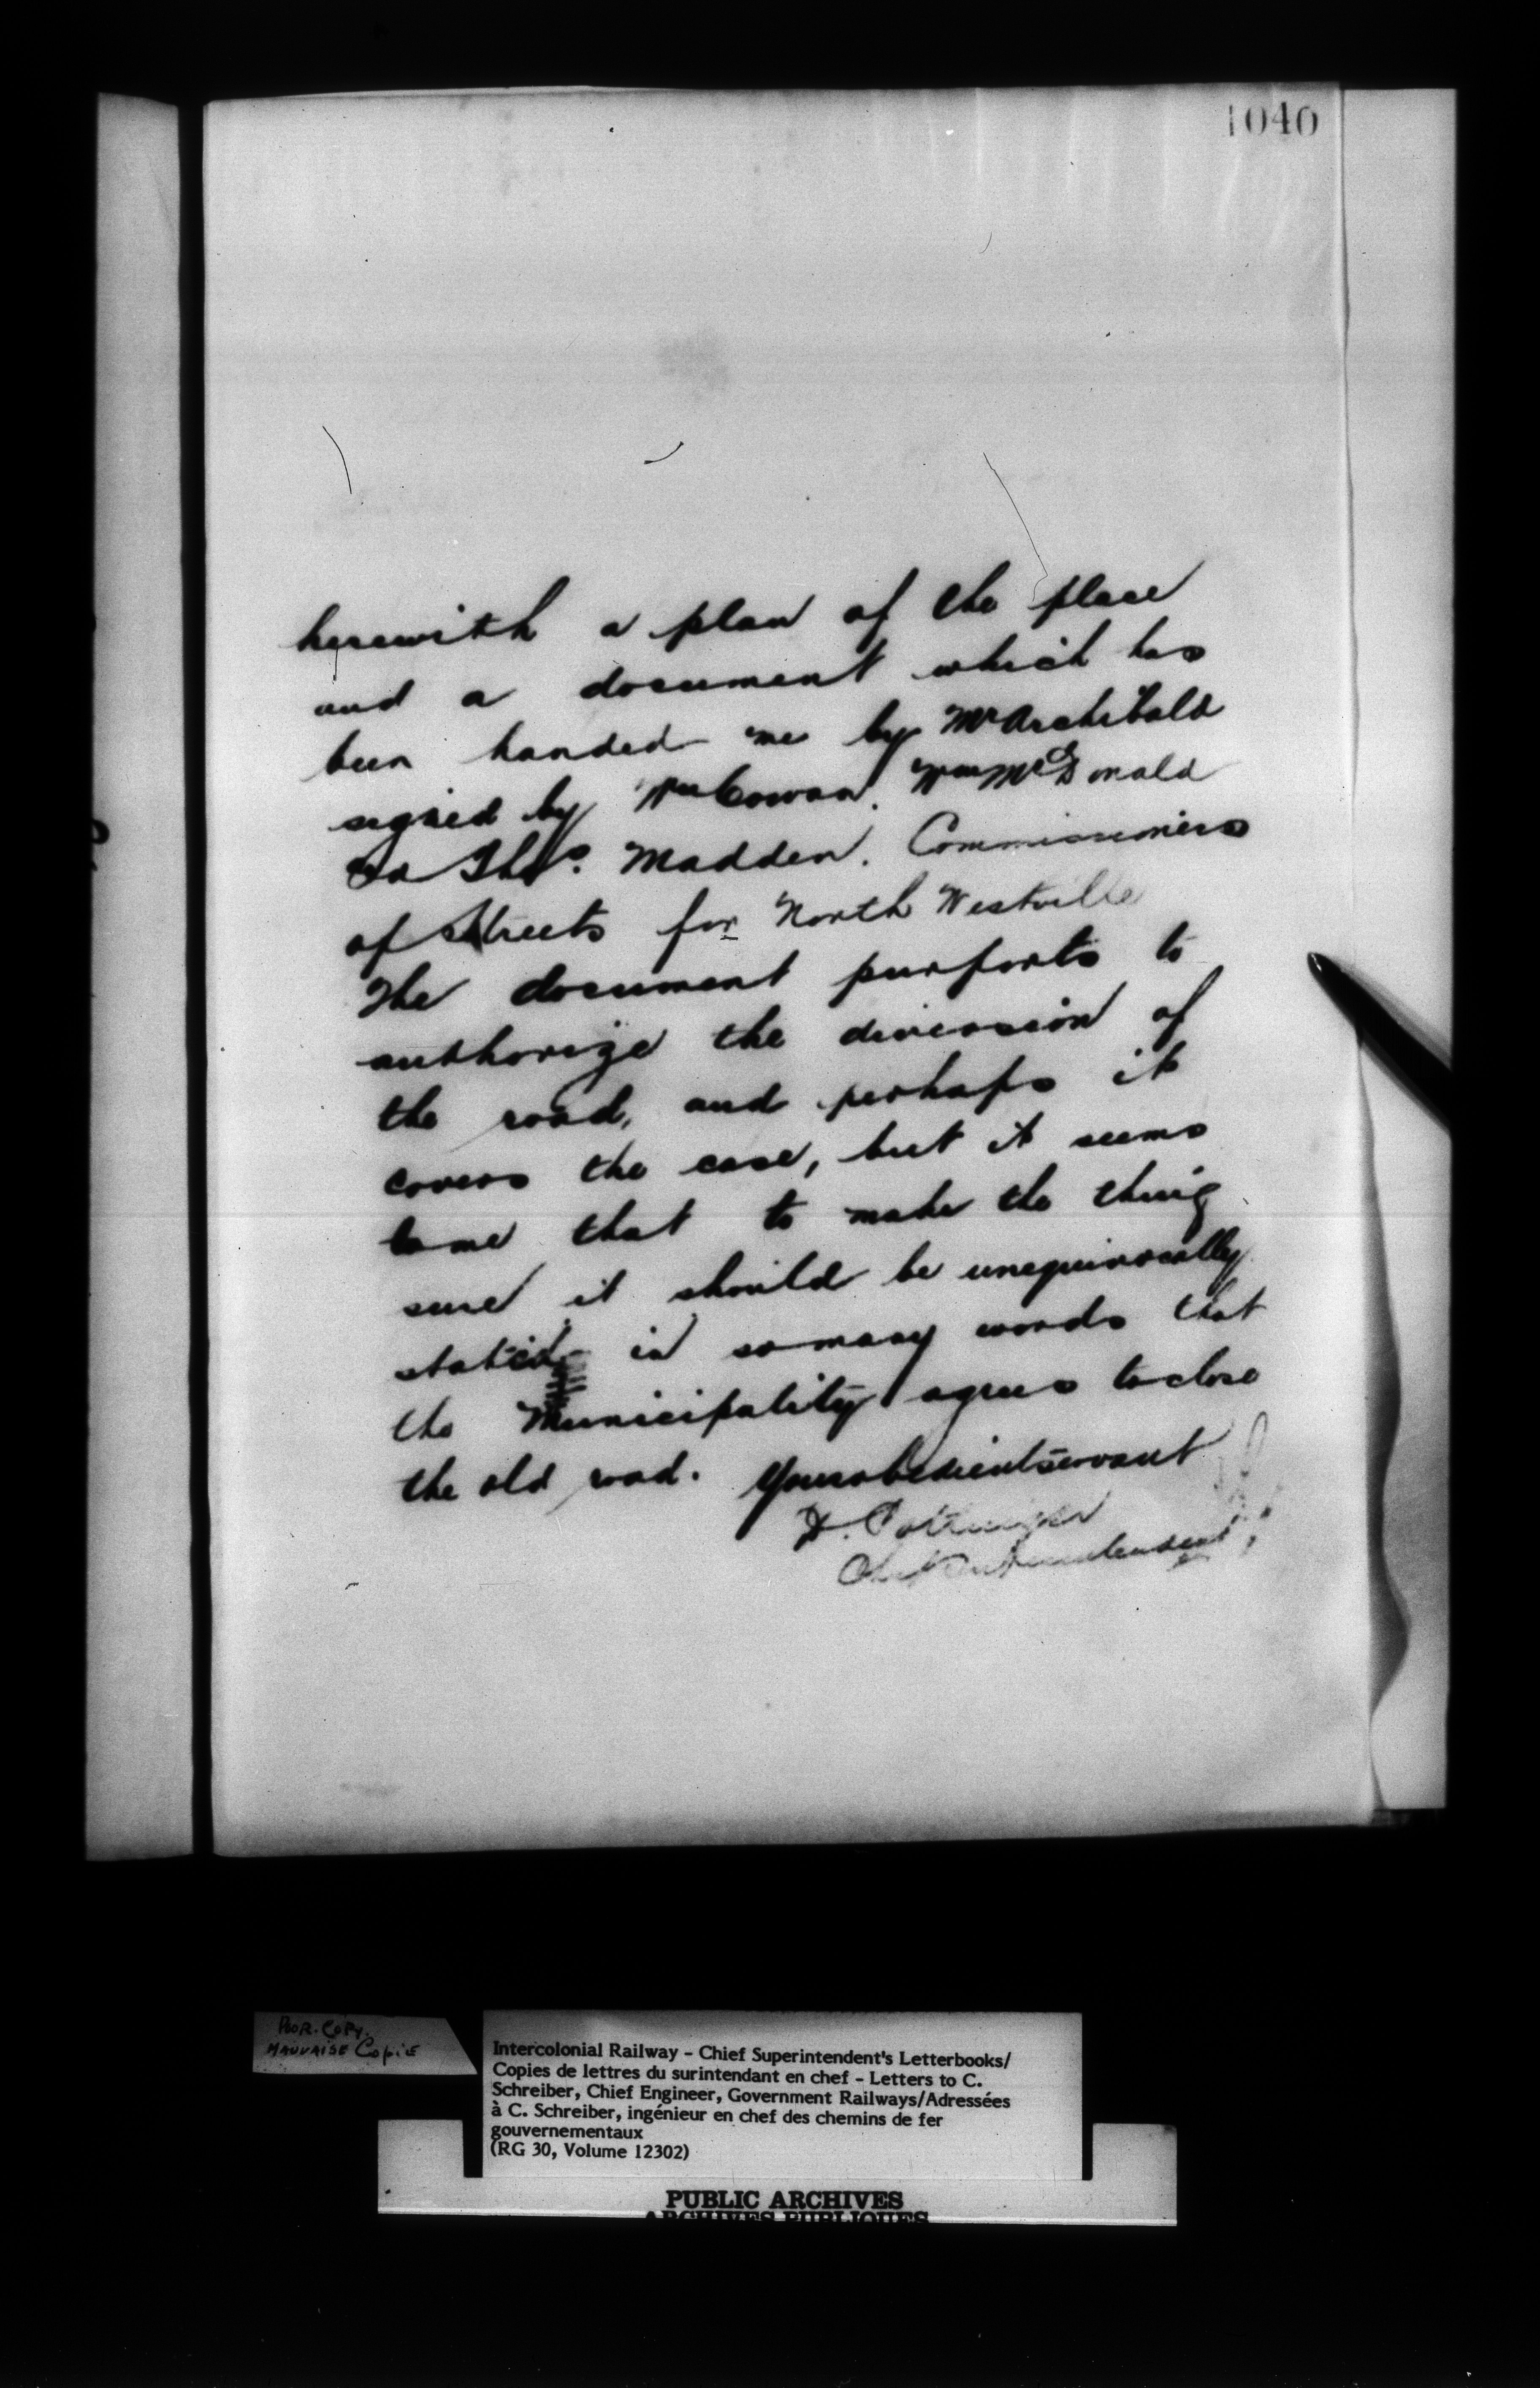 1040
herewith a plan of the place
and a document which has
been handed me by Mr Archibald
signed by Wm Cowan. Wm McDonald
Thos. Madden. Commissioners
of Streets for North Westville
The document purports to
authorize the diversion of
the road, and perhaps it
covers the case, but it seems
to me that to make the thing
sure it should be unequivocally
stated in so many words that
the Municipality agrees to close
the old road. Your obedient servant
D. Pottinger
Chief Superintendent
POOR. COPY.
MAUVAISE Copie
Intercolonial Railway – Chief Superintendent's Letterbooks/
Copies de lettres du surintendant en chef – Letters to C.
Schreiber, Chief Engineer, Government Railways/Adressées
à C. Schreiber, ingénieur en chef des chemins de fer
gouvernementaux
(RG 30, Volume 12302)
PUBLIC ARCHIVES
ARCHIVES PUBLIQUES